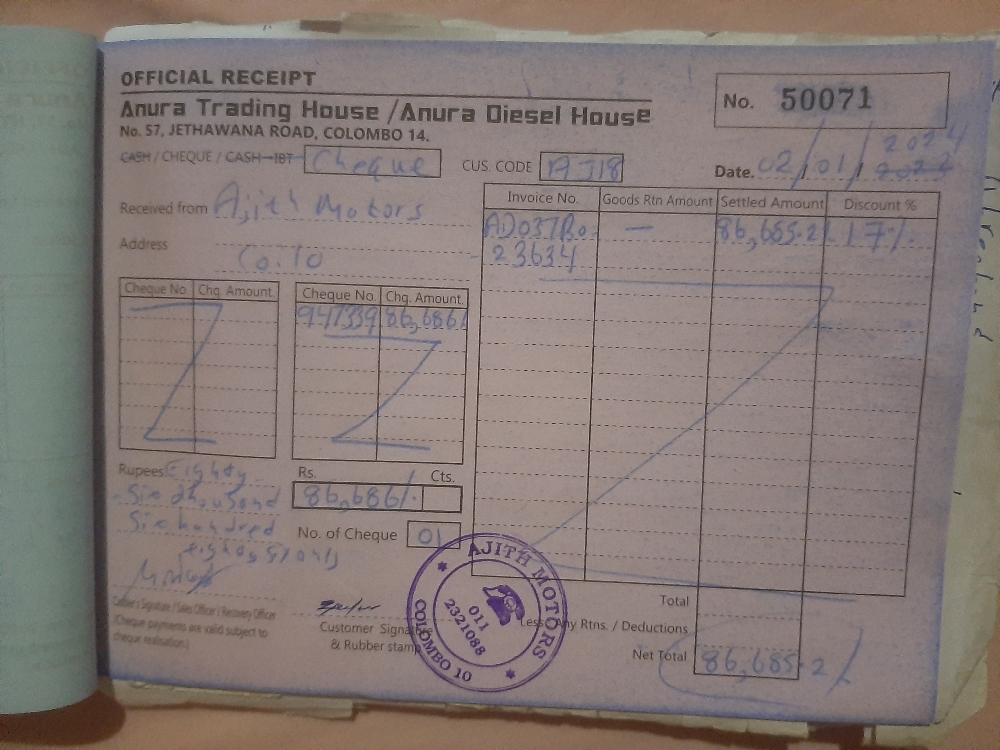 OFFICIAL RECEIPT
Anura Trading House /Anura Diesel House
No. 57, JETHAWANA ROAD, COLOMBO 14.
No. 50071
CASH / CHEQUE / CASH-IBT Cheque
CUS. CODE AJ18
Date. 02/01/2024
Received from Ajith Motors
Address Co.10
Invoice No. Goods Rtn Amount Settled Amount Discount %
AD037Bo. — 86,685.21 17%
23634
Cheque No. Chq. Amount.
Cheque No. Chq. Amount.
947339 86,686/
Rupees Eighty
Six thousand
Six hundred
eighty six only
Rs. Cts.
86,686/.
No. of Cheque 01
Cashier's Signature / Sales Officer / Recovery Officer
(Cheque payments are valid subject to
cheque realisation.)
Customer Signature
& Rubber stamp
AJITH MOTORS
011
2321088
COLOMBO 10
Total
Less Any Rtns. / Deductions
Net Total 86,685.21